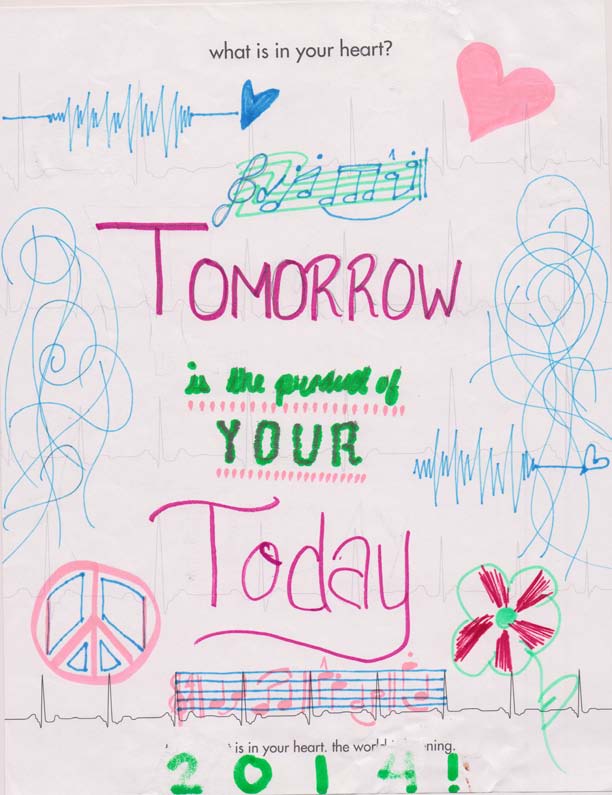 what is in your heart?
TOMORROW
is the product of
YOUR
Today
is in your heart. the world
2014!